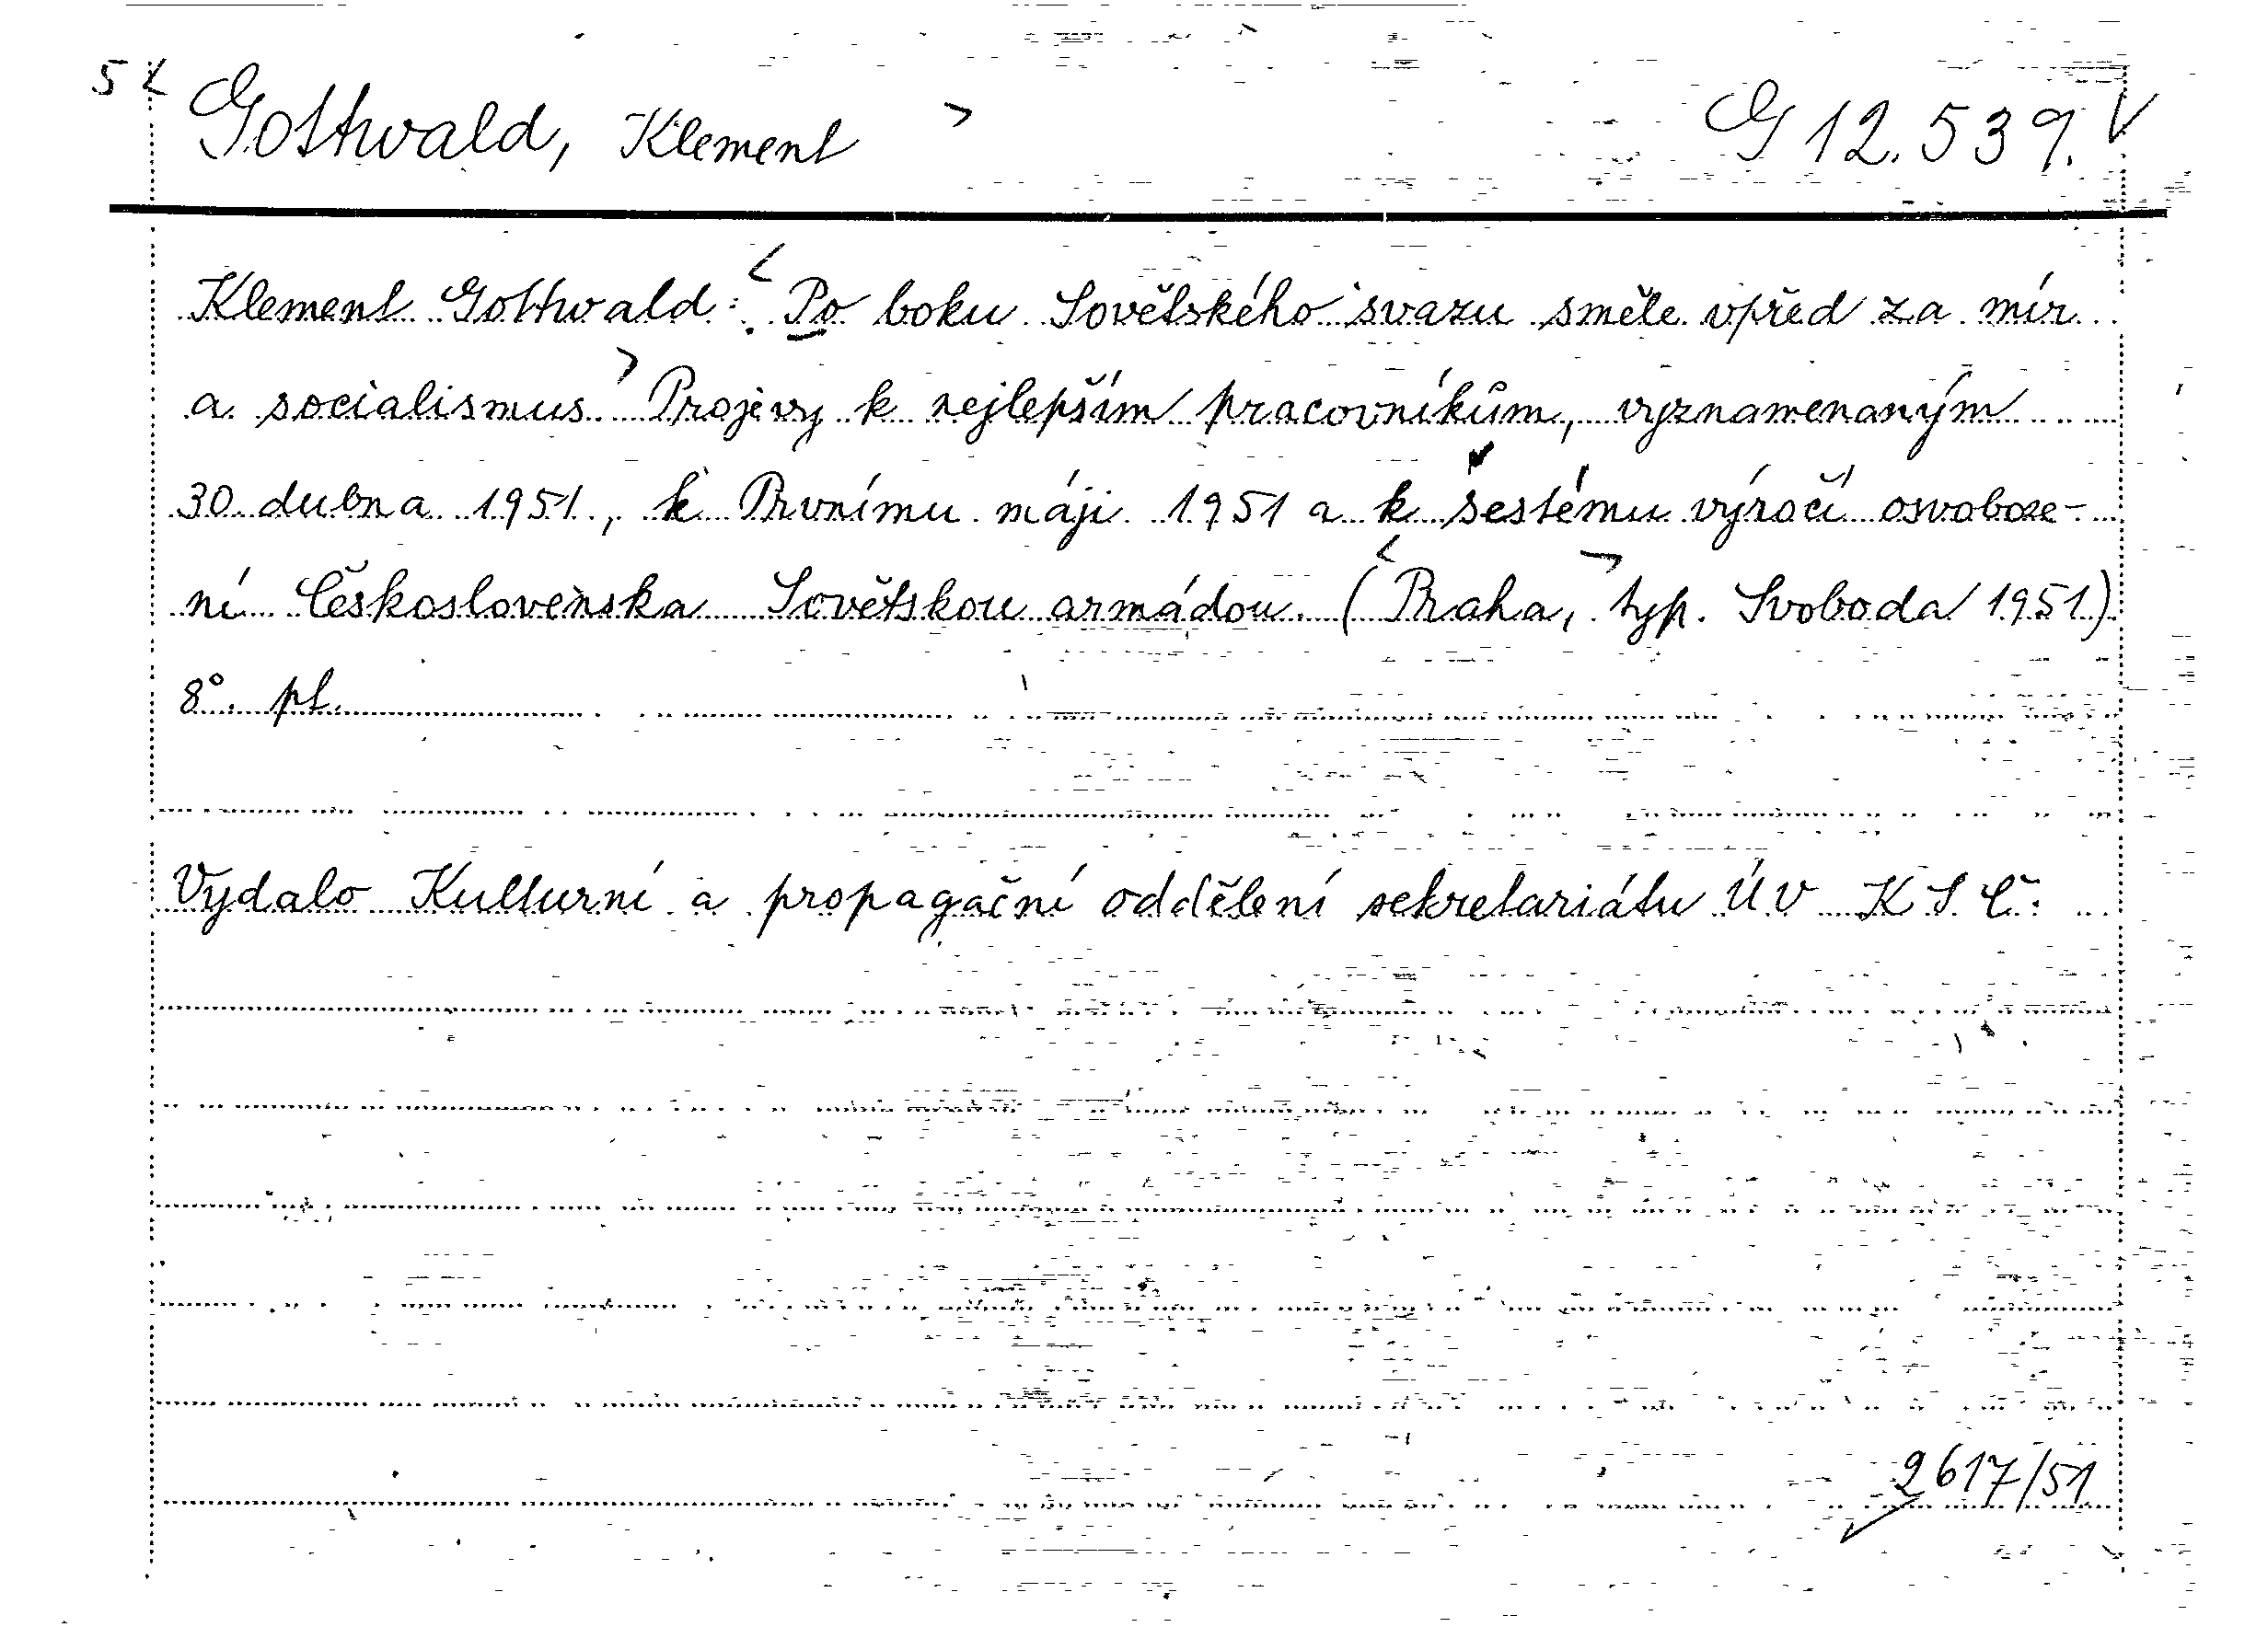 5 < Gottwald, Klement > G 12.539. V
Klement Gottwald: < Po boku Sovětského svazu směle vpřed za mír
a socialismus. > Projevy k nejlepším pracovníkům, vyznamenaným
30 dubna 1951, k Prvnímu máji 1951 a k šestému výročí osvoboze-
ní Československa Sovětskou armádou. (< Praha, > typ. Svoboda 1951)
8°. pl.
Vydalo Kulturní a propagační oddělení sekretariátu ÚV KSČ.
2617/51